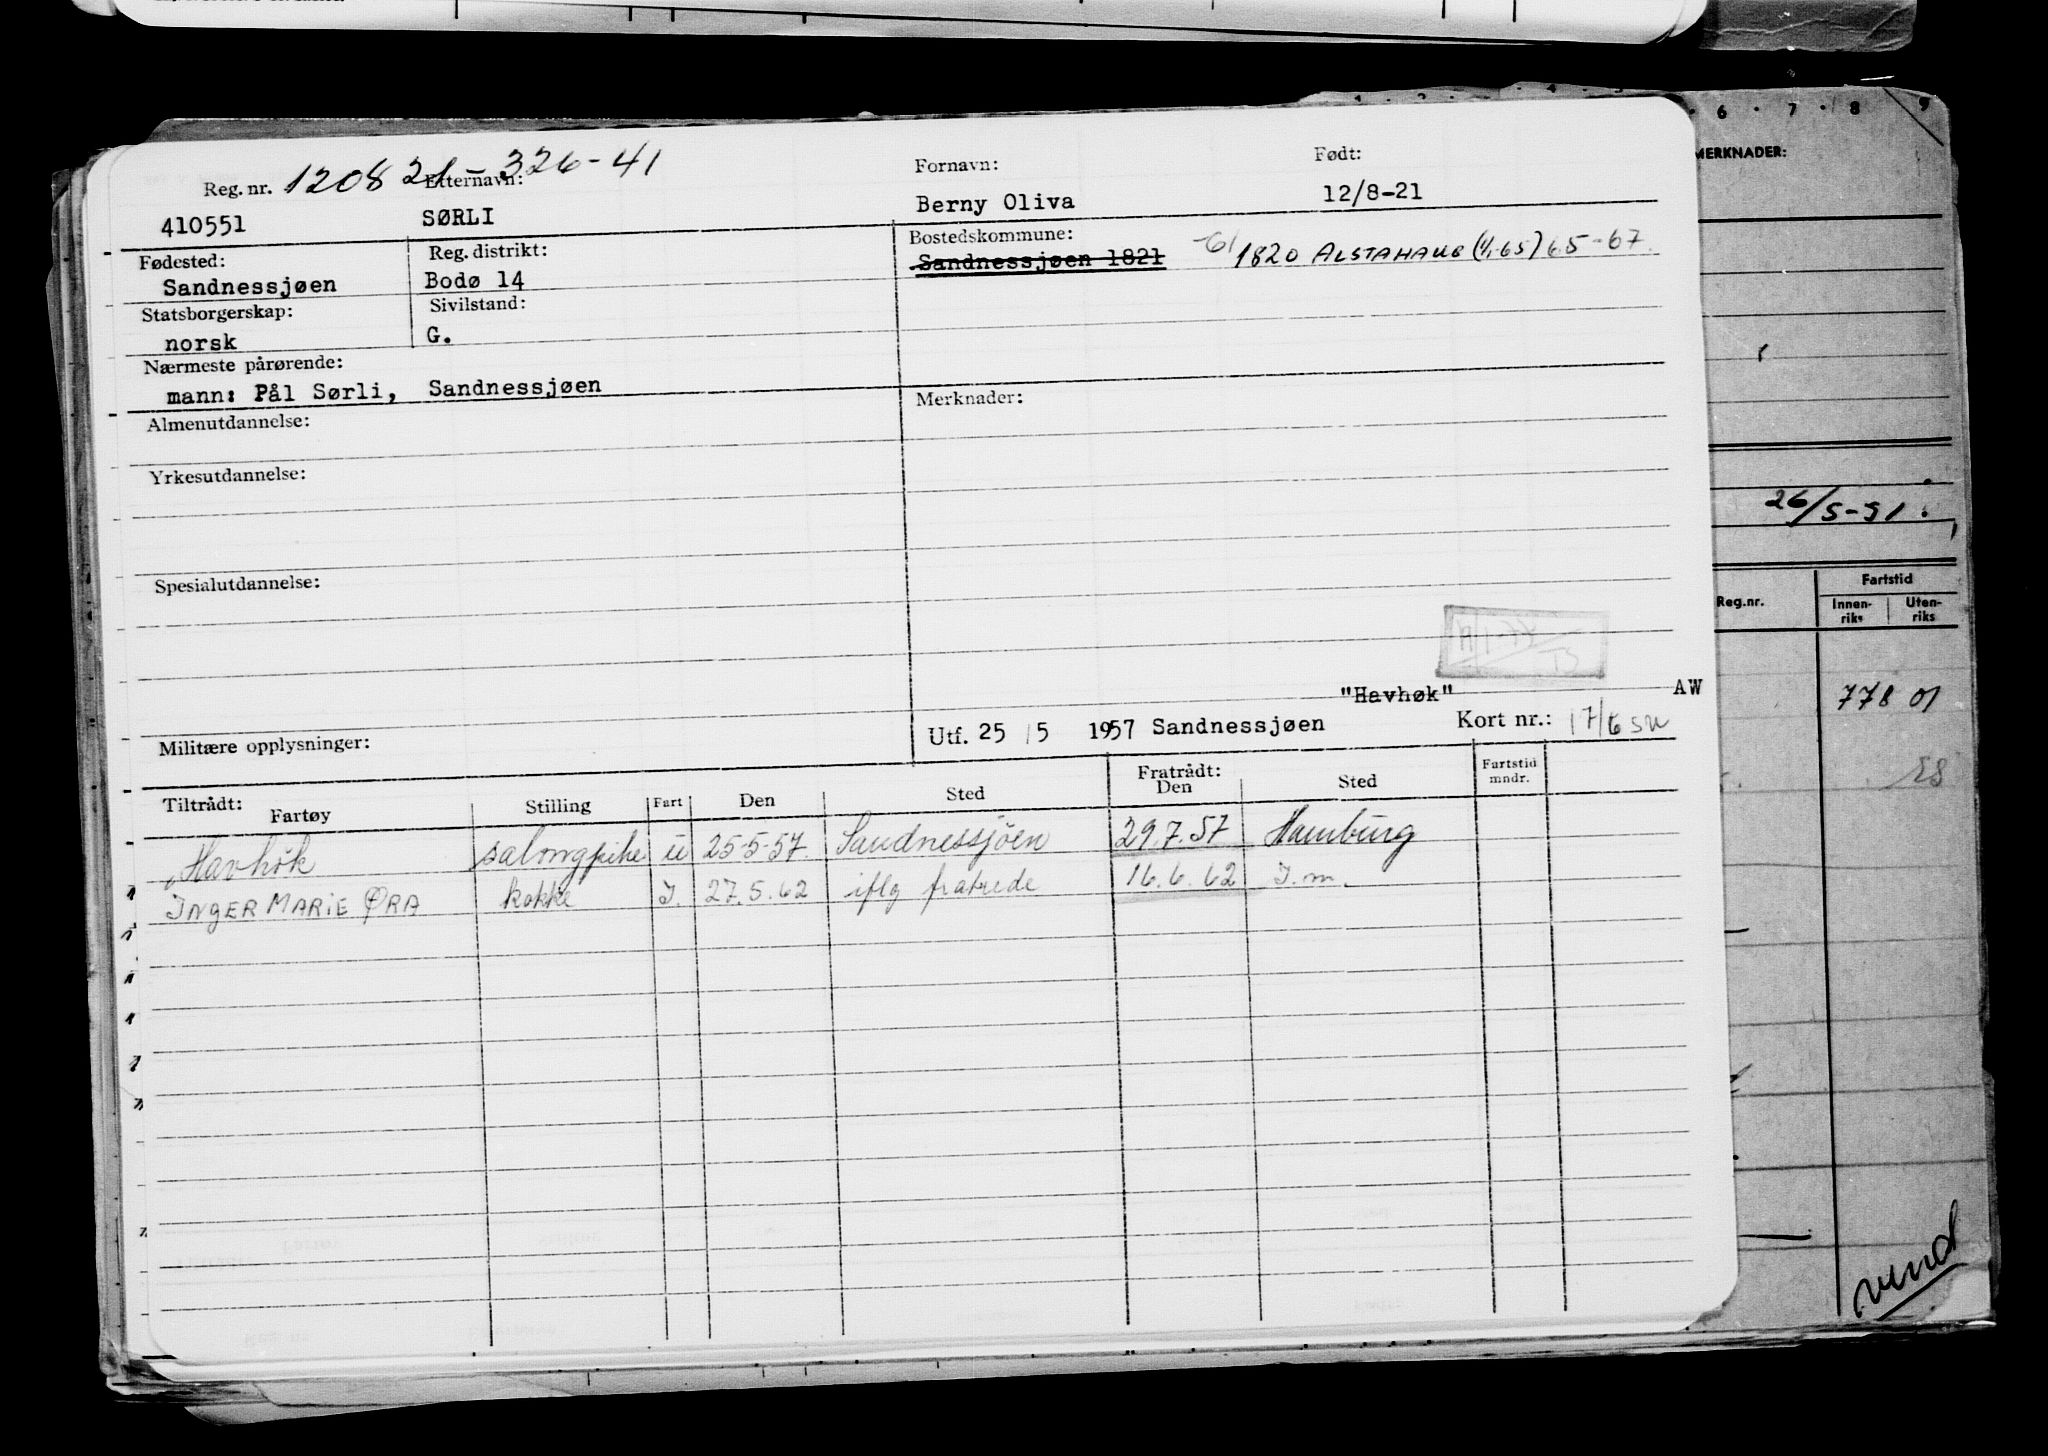 6 · 7 · 8 9
MERKNADER:
Reg. nr. 120821-326-41 Etternavn: Fornavn: Født:
410551 SØRLI Berny Oliva 12/8-21
Fødested: Reg. distrikt: Bostedskommune:
Sandnessjøen Bodø 14 Sandnessjøen 1821 -61 1820 ALSTAHAUG (1/1-65) 65-67.
Statsborgerskap: Sivilstand:
norsk G.
Nærmeste pårørende:
mann: Pål Sørli, Sandnessjøen
Almenutdannelse: Merknader:
Yrkesutdannelse:
26/5-51.
Spesialutdannelse:
Fartstid
Reg.nr. Innen-riks Uten-riks
"Havhøk" AW
778 01
Militære opplysninger: Utf. 25/5 1957 Sandnessjøen Kort nr.: 17/6 su
Tiltrådt: Fratrådt:
Fartøy Stilling Fart Den Sted Den Sted Fartstid mndr.
Havhøk salongpike u 25-5-57. Sandnessjöen 29.7.57 Hamburg
INGER MARIE ØRA kokke I. 27.5.62 iflg fratrede 16.6.62 I.m.
vend